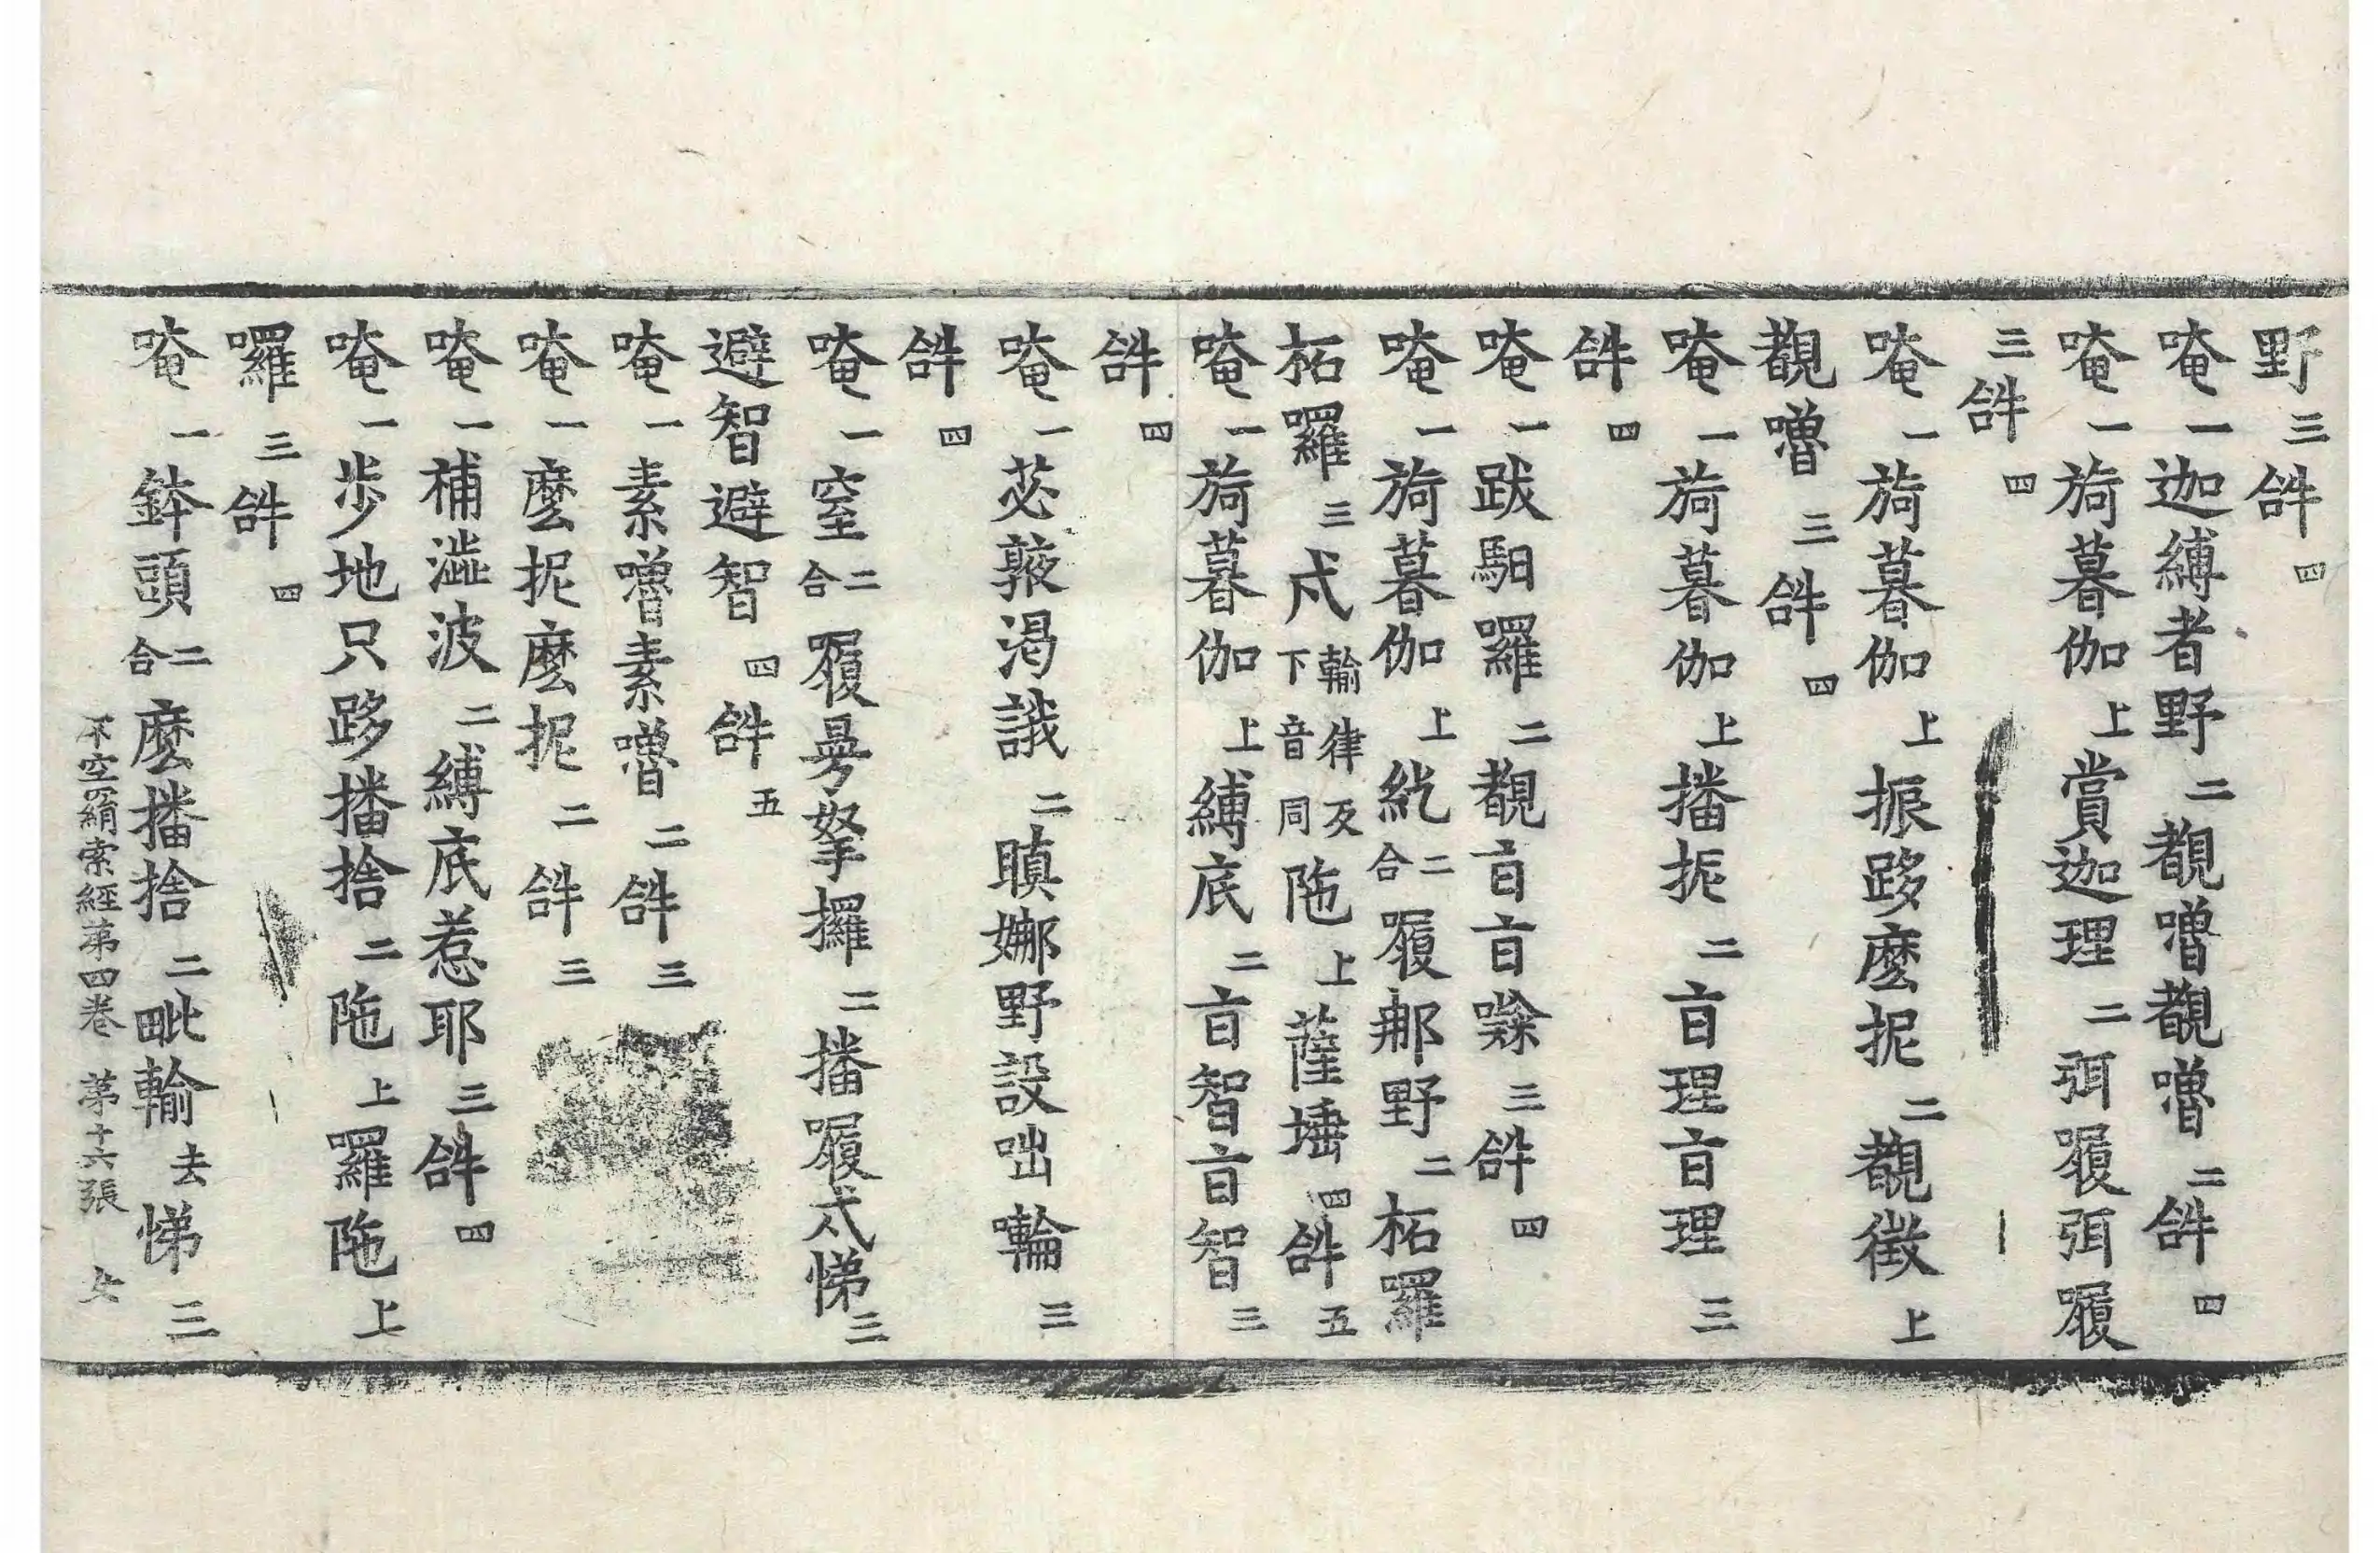 野三𤙖四
唵一迦縛者野二覩嚕覩嚕二𤙖四
唵一旖暮伽上賞迦理二弭㗚弭㗚
三𤙖四
唵一旖暮伽上振跢麼抳二覩徵上
覩嚕三𤙖四
唵一旖暮伽上播振二㫖理㫖理三
𤙖四
唵一跋馹囉二覩㫖㫖㘑三𤙖四
唵一旖暮伽上紇二合㗚那野二柘囉
柘囉三戍輸律反下音同陁上薩埵四𤙖五
唵一旖暮伽上縛底二㫖智㫖智三
𤙖四
唵一苾敠渴誐二瞋娜野設咄𡃖三
𤙖四
唵一窒二合㗚曼拏攞二播㗚戍悌三
避智避智四𤙖五
唵一素嚕素嚕二𤙖三
唵一麼抳麼抳二𤙖三
唵一補澁波二縛底惹耶三𤙖四
唵一步地只跢播捨二陁上羅陁上
囉三𤙖四
唵一鉢頭二合麼播捨二毗輸去悌三
不空羂索經第四卷　第十六張　女